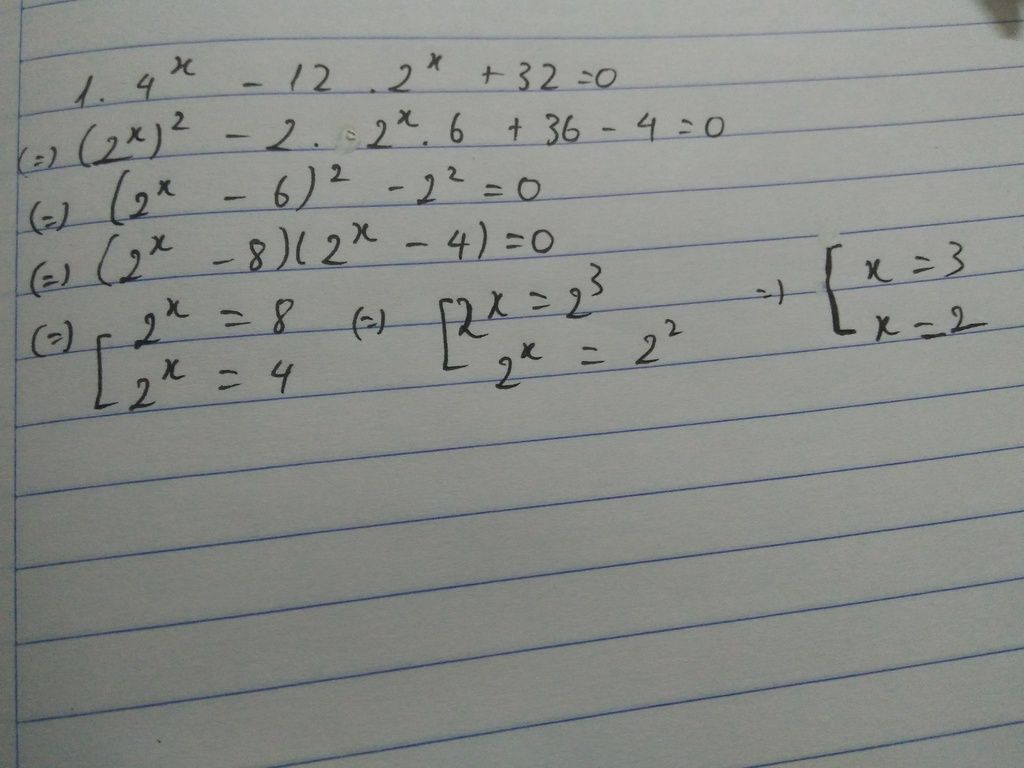 1. 4^x - 12 . 2^x + 32 = 0
(=) (2^x)^2 - 2 . 2^x . 6 + 36 - 4 = 0
(=) (2^x - 6)^2 - 2^2 = 0
(=) (2^x - 8)(2^x - 4) = 0
(=) [ 2^x = 8 (=) [ 2^x = 2^3 =) [ x = 3
2^x = 4 2^x = 2^2 x = 2